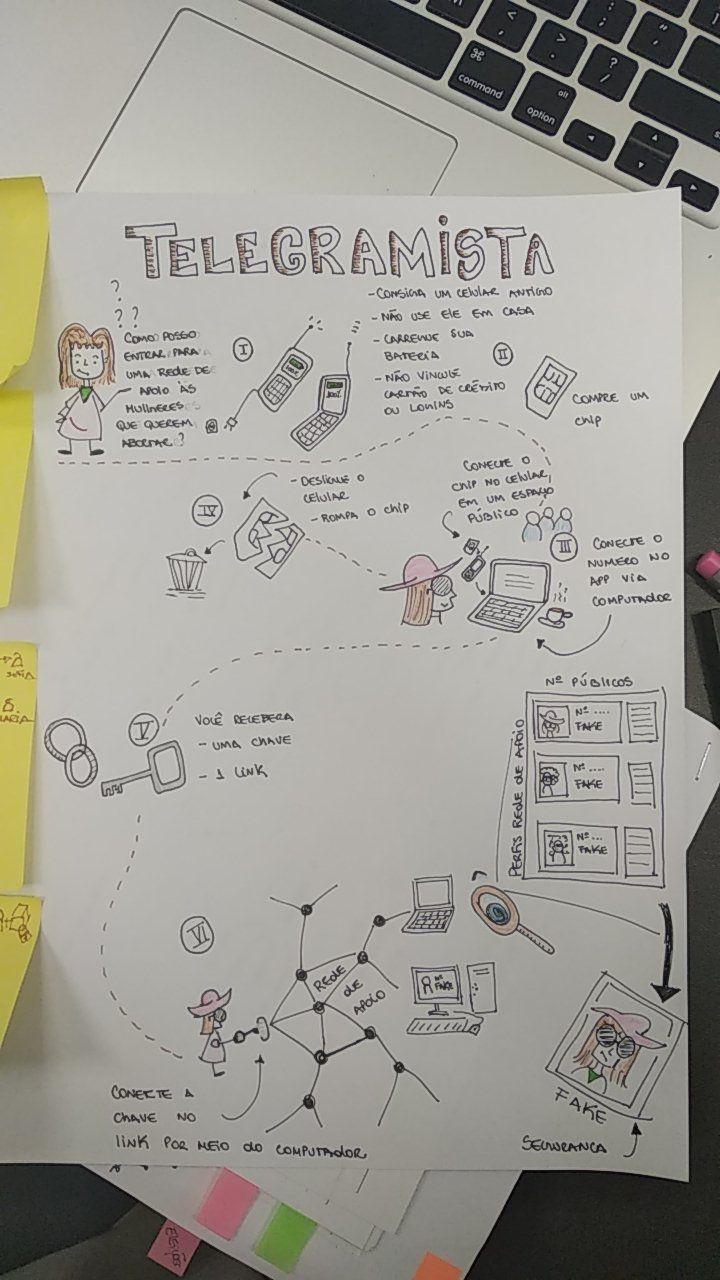 command
alt
option
TELEGRAMISTA
? ? ?
COMO POSSO
ENTRAR PARA
UMA REDE DE
APOIO ÀS
MULHERES
QUE QUEREM
ABORTAR?
I
100%
100%
- CONSIGA UM CELULAR ANTIGO
- NÃO USE ELE EM CASA
- CARREGUE SUA
BATERIA
- NÃO VINCULE
CARTÃO DE CRÉDITO
OU LOGINS
II
COMPRE UM
CHIP
CONECTE O
CHIP NO CELULAR,
EM UM ESPAÇO
PÚBLICO
III
CONECTE O
NUMERO NO
APP VIA
COMPUTADOR
IV
- DESLIGUE O
CELULAR
- ROMPA O CHIP
V
VOCÊ RECEBERA
- UMA CHAVE
- 1 LINK
Nº PÚBLICOS
PERFIS REDE DE APOIO
Nº ....
FAKE
Nº ....
FAKE
Nº ...
FAKE
VI
REDE
DE
APOIO
Nº
FAKE
CONECTE A
CHAVE NO
LINK POR MEIO DO COMPUTADOR
FAKE
SEGURANCA
ELEIÇÕES